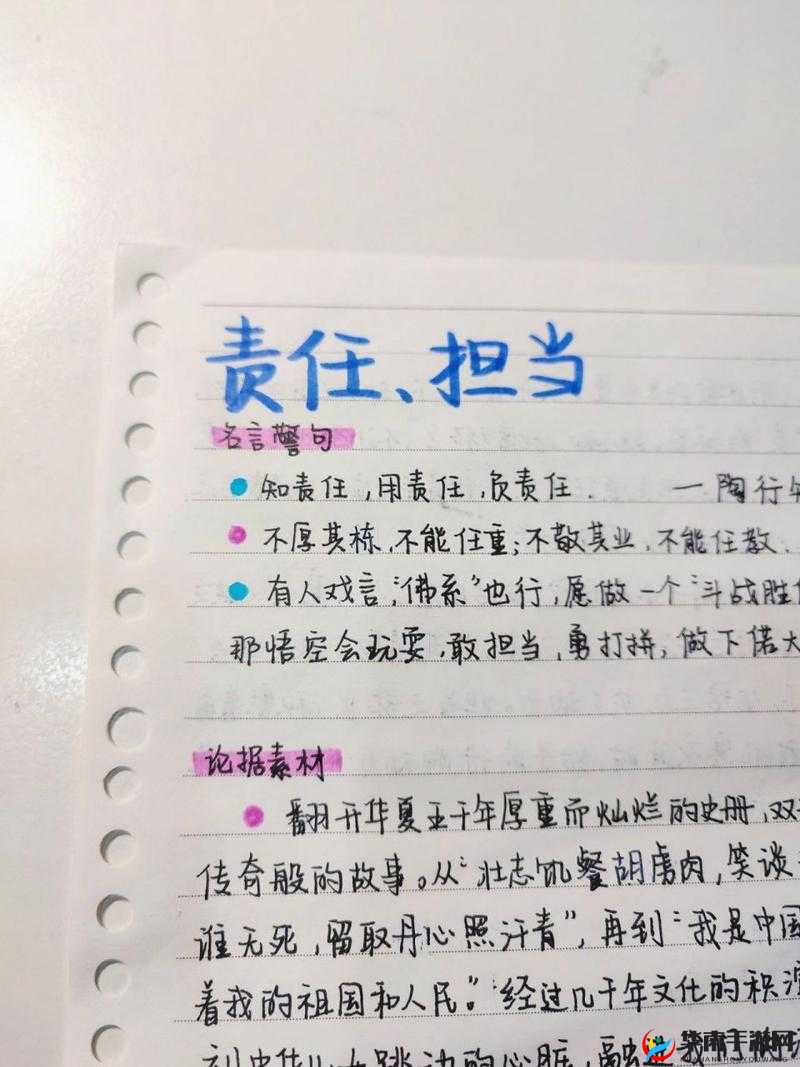 责任、担当
名言警句
知责任,用责任,负责任. —陶行
不厚其栋,不能任重;不敬其业,不能任教.
有人戏言,“佛系”也行,愿做一个“斗战胜
那悟空会玩耍,敢担当,勇打拼,做下偌大
论据素材
翻开华夏五千年厚重而灿烂的史册,双
传奇般的故事。从“壮志饥餐胡虏肉,笑谈
谁无死,留取丹心照汗青”,再到“我是中国
着我的祖国和人民。”经过几千年文化的积
到中华儿女跳动的心脏,融进我们
华南手游网